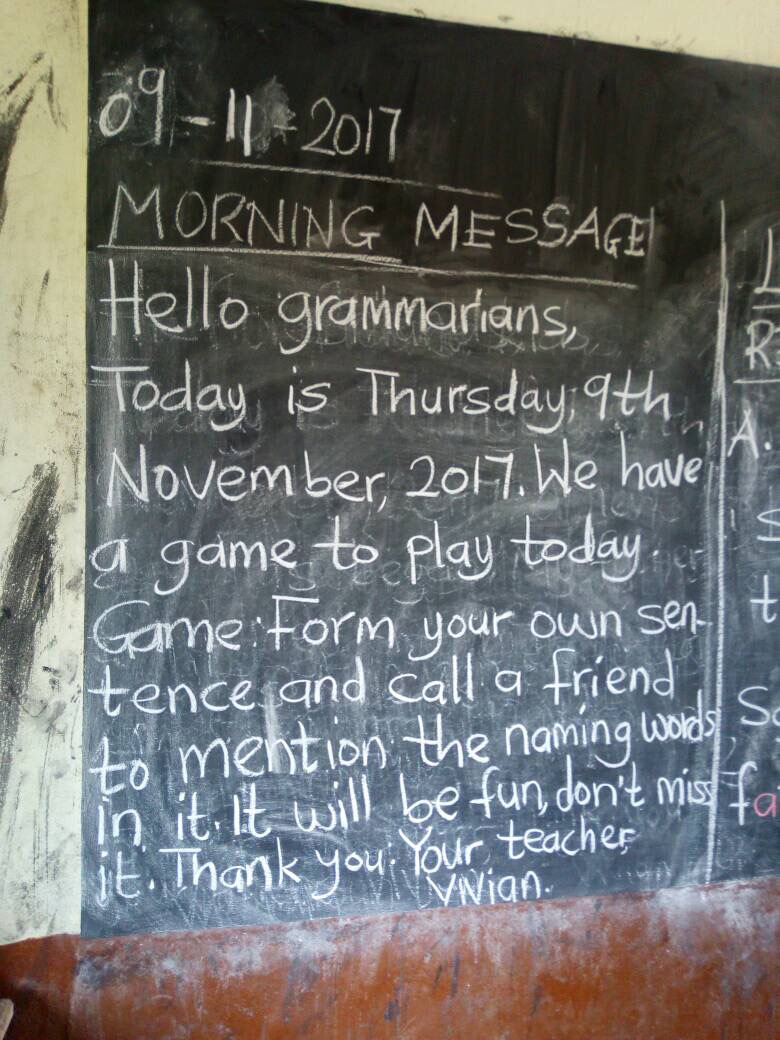 09-11-2017
MORNING MESSAGE
Hello grammarians,
Today is Thursday, 9th
November, 2017. We have
a game to play today.
Game: Form your own sen-
tence and call a friend
to mention the naming words
in it. It will be fun, don't miss
it. Thank you. Your teacher,
Vivian.
A.
t